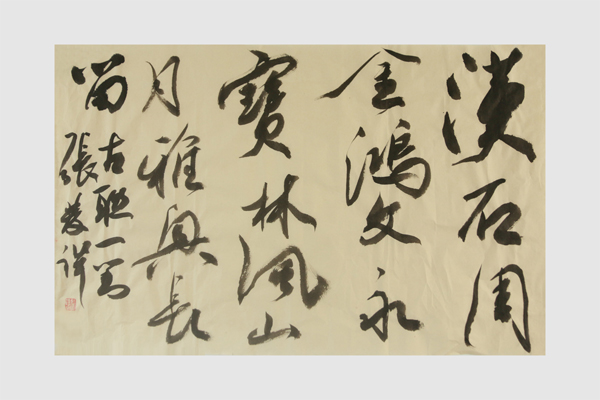 漢石周
金鴻文永
寶林風山
月雅興長
留
古聯一對
張